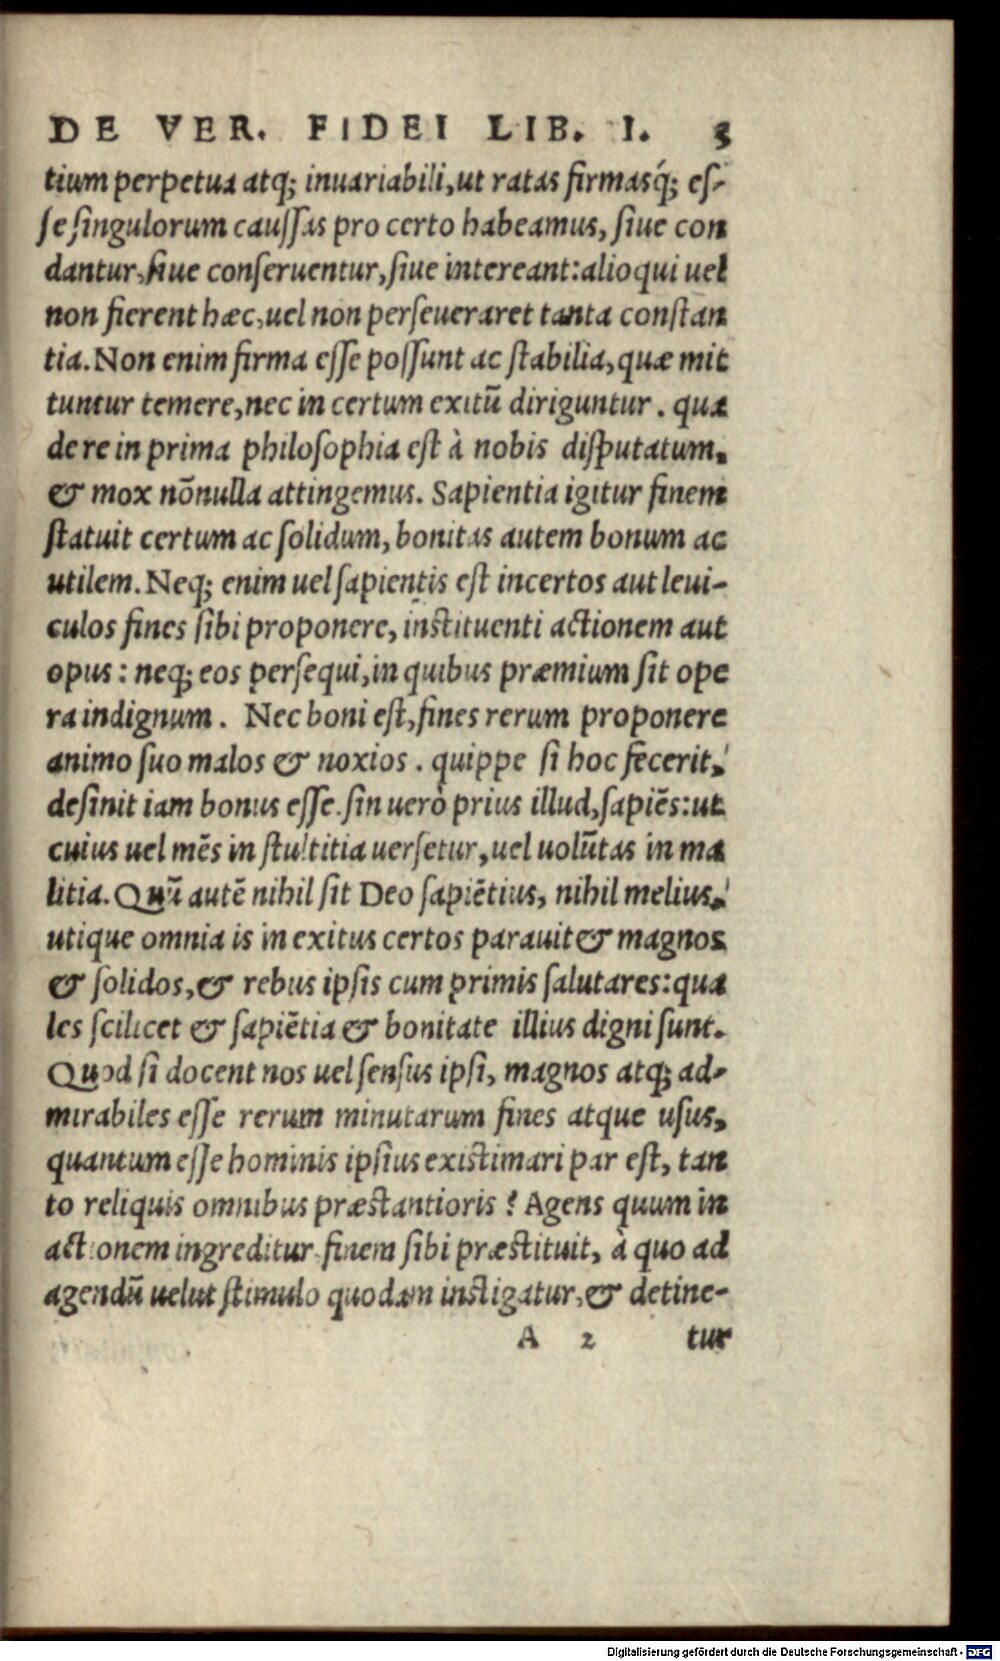 DE VER. FIDEI LIB. I. 3
tium perpetua atq; inuariabili, ut ratas firmasq́; es-
se singulorum caussas pro certo habeamus, siue con
dantur, siue conseruentur, siue intereant: alioqui uel
non fierent hæc, uel non perseueraret tanta constan
tia. Non enim firma esse possunt ac stabilia, quæ mit
tuntur temere, nec in certum exitū diriguntur. qua
de re in prima philosophia est à nobis disputatum,
& mox nōnulla attingemus. Sapientia igitur finem
statuit certum ac solidum, bonitas autem bonum ac
utilem. Neq; enim uel sapientis est incertos aut leui-
culos fines sibi proponere, instituenti actionem aut
opus: neq; eos persequi, in quibus præmium sit ope
ra indignum. Nec boni est, fines rerum proponere
animo suo malos & noxios. quippe si hoc fecerit,
desinit iam bonus esse. sin uerò prius illud, sapiēs: ut
cuius uel mēs in stultitia uersetur, uel uolūtas in ma
litia. Quū autē nihil sit Deo sapiētius, nihil melius,
utique omnia is in exitus certos parauit & magnos
& solidos, & rebus ipsis cum primis salutares: qua
les scilicet & sapiētia & bonitate illius digni sunt.
Quod si docent nos uel sensus ipsi, magnos atq; ad-
mirabiles esse rerum minutarum fines atque usus,
quantum esse hominis ipsius existimari par est, tan
to reliquis omnibus præstantioris? Agens quum in
actionem ingreditur finem sibi præstituit, à quo ad
agendū uelut stimulo quodam instigatur, & detine-
A 2 tur
Digitalisierung gefördert durch die Deutsche Forschungsgemeinschaft - DFG